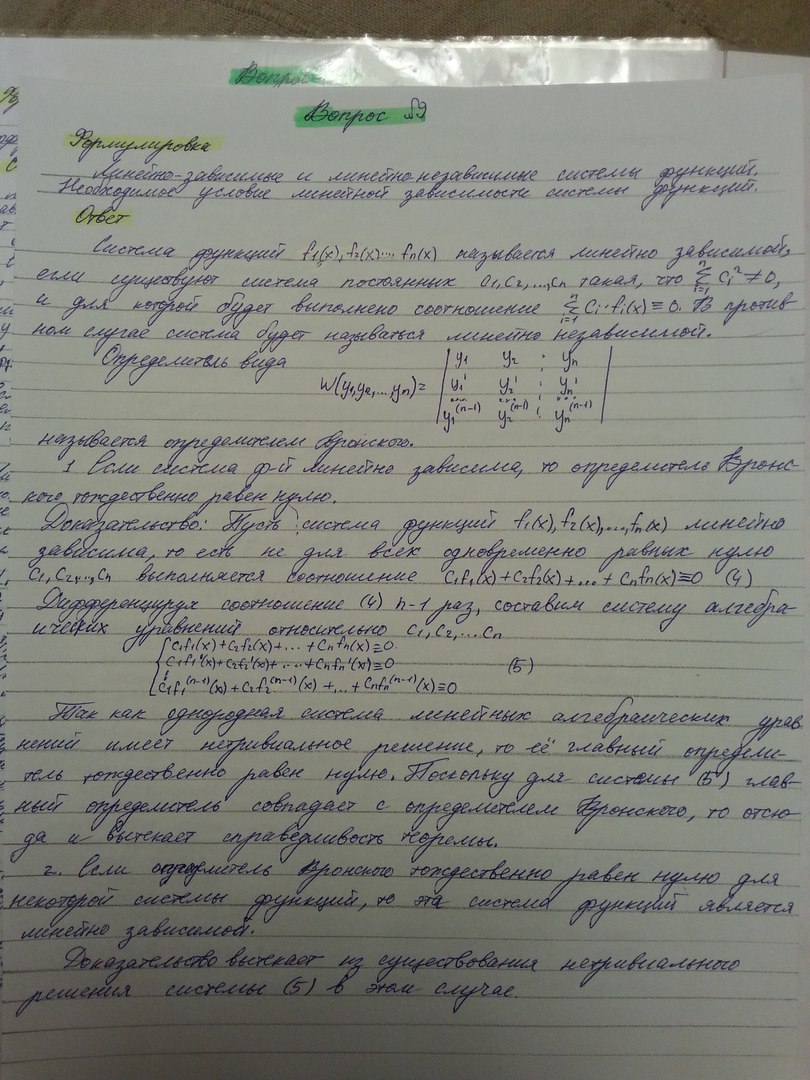 Вопрос
Вопрос 59
Формулировка
Линейно-зависимые и линейно независимые системы функций.
Необходимое условие линейной зависимости системы функций.
Ответ
Система функций f₁(x), f₂(x)... fₙ(x) называется линейно зависимой,
если существуют система постоянных C₁, C₂, ..., Cₙ такая, что ∑ᵢ₌₁ⁿ Cᵢ² ≠ 0,
и для которой будет выполнено соотношение ∑ᵢ₌₁ⁿ Cᵢ·fᵢ(x) ≡ 0. В против
ном случае система будет называться линейно независимой.
Определитель вида
W(y₁, y₂, ..., yₙ) = | y₁ y₂ ⋮ yₙ |
| y₁' y₂' ⋮ yₙ' |
| ... ... ⋮ ... |
| y₁⁽ⁿ⁻¹⁾ y₂⁽ⁿ⁻¹⁾ ⋮ yₙ⁽ⁿ⁻¹⁾ |
называется определителем Вронского.
1 Если система ф-й линейно зависима, то определитель Вронс-
кого тождественно равен нулю.
Доказательство: Пусть система функций f₁(x), f₂(x), ..., fₙ(x) линейно
зависима, то есть не для всех одновременно равных нулю
C₁, C₂, ..., Cₙ выполняется соотношение C₁f₁(x)+C₂f₂(x)+...+Cₙfₙ(x)≡0 (4)
Дифференцируя соотношение (4) n-1 раз, составим систему алгебра-
ических уравнений относительно C₁, C₂, ... Cₙ
{ C₁f₁(x)+C₂f₂(x)+...+Cₙfₙ(x)≡0.
C₁f₁'(x)+C₂f₂'(x)+...+Cₙfₙ'(x)≡0 (5)
⋮
C₁f₁⁽ⁿ⁻¹⁾(x)+C₂f₂⁽ⁿ⁻¹⁾(x)+...+Cₙfₙ⁽ⁿ⁻¹⁾(x)≡0
Так как однородная система линейных алгебраических урав
нений имеет нетривиальное решение, то её главный определи-
тель тождественно равен нулю. Поскольку для системы (5) глав-
ный определитель совпадает с определителем Вронского, то отсю-
да и вытекает справедливость теоремы.
2. Если определитель Вронского тождественно равен нулю для
некоторой системы функций, то эта система функций является
линейно зависимой.
Доказательство вытекает из существования нетривиального
решения системы (5) в этом случае.